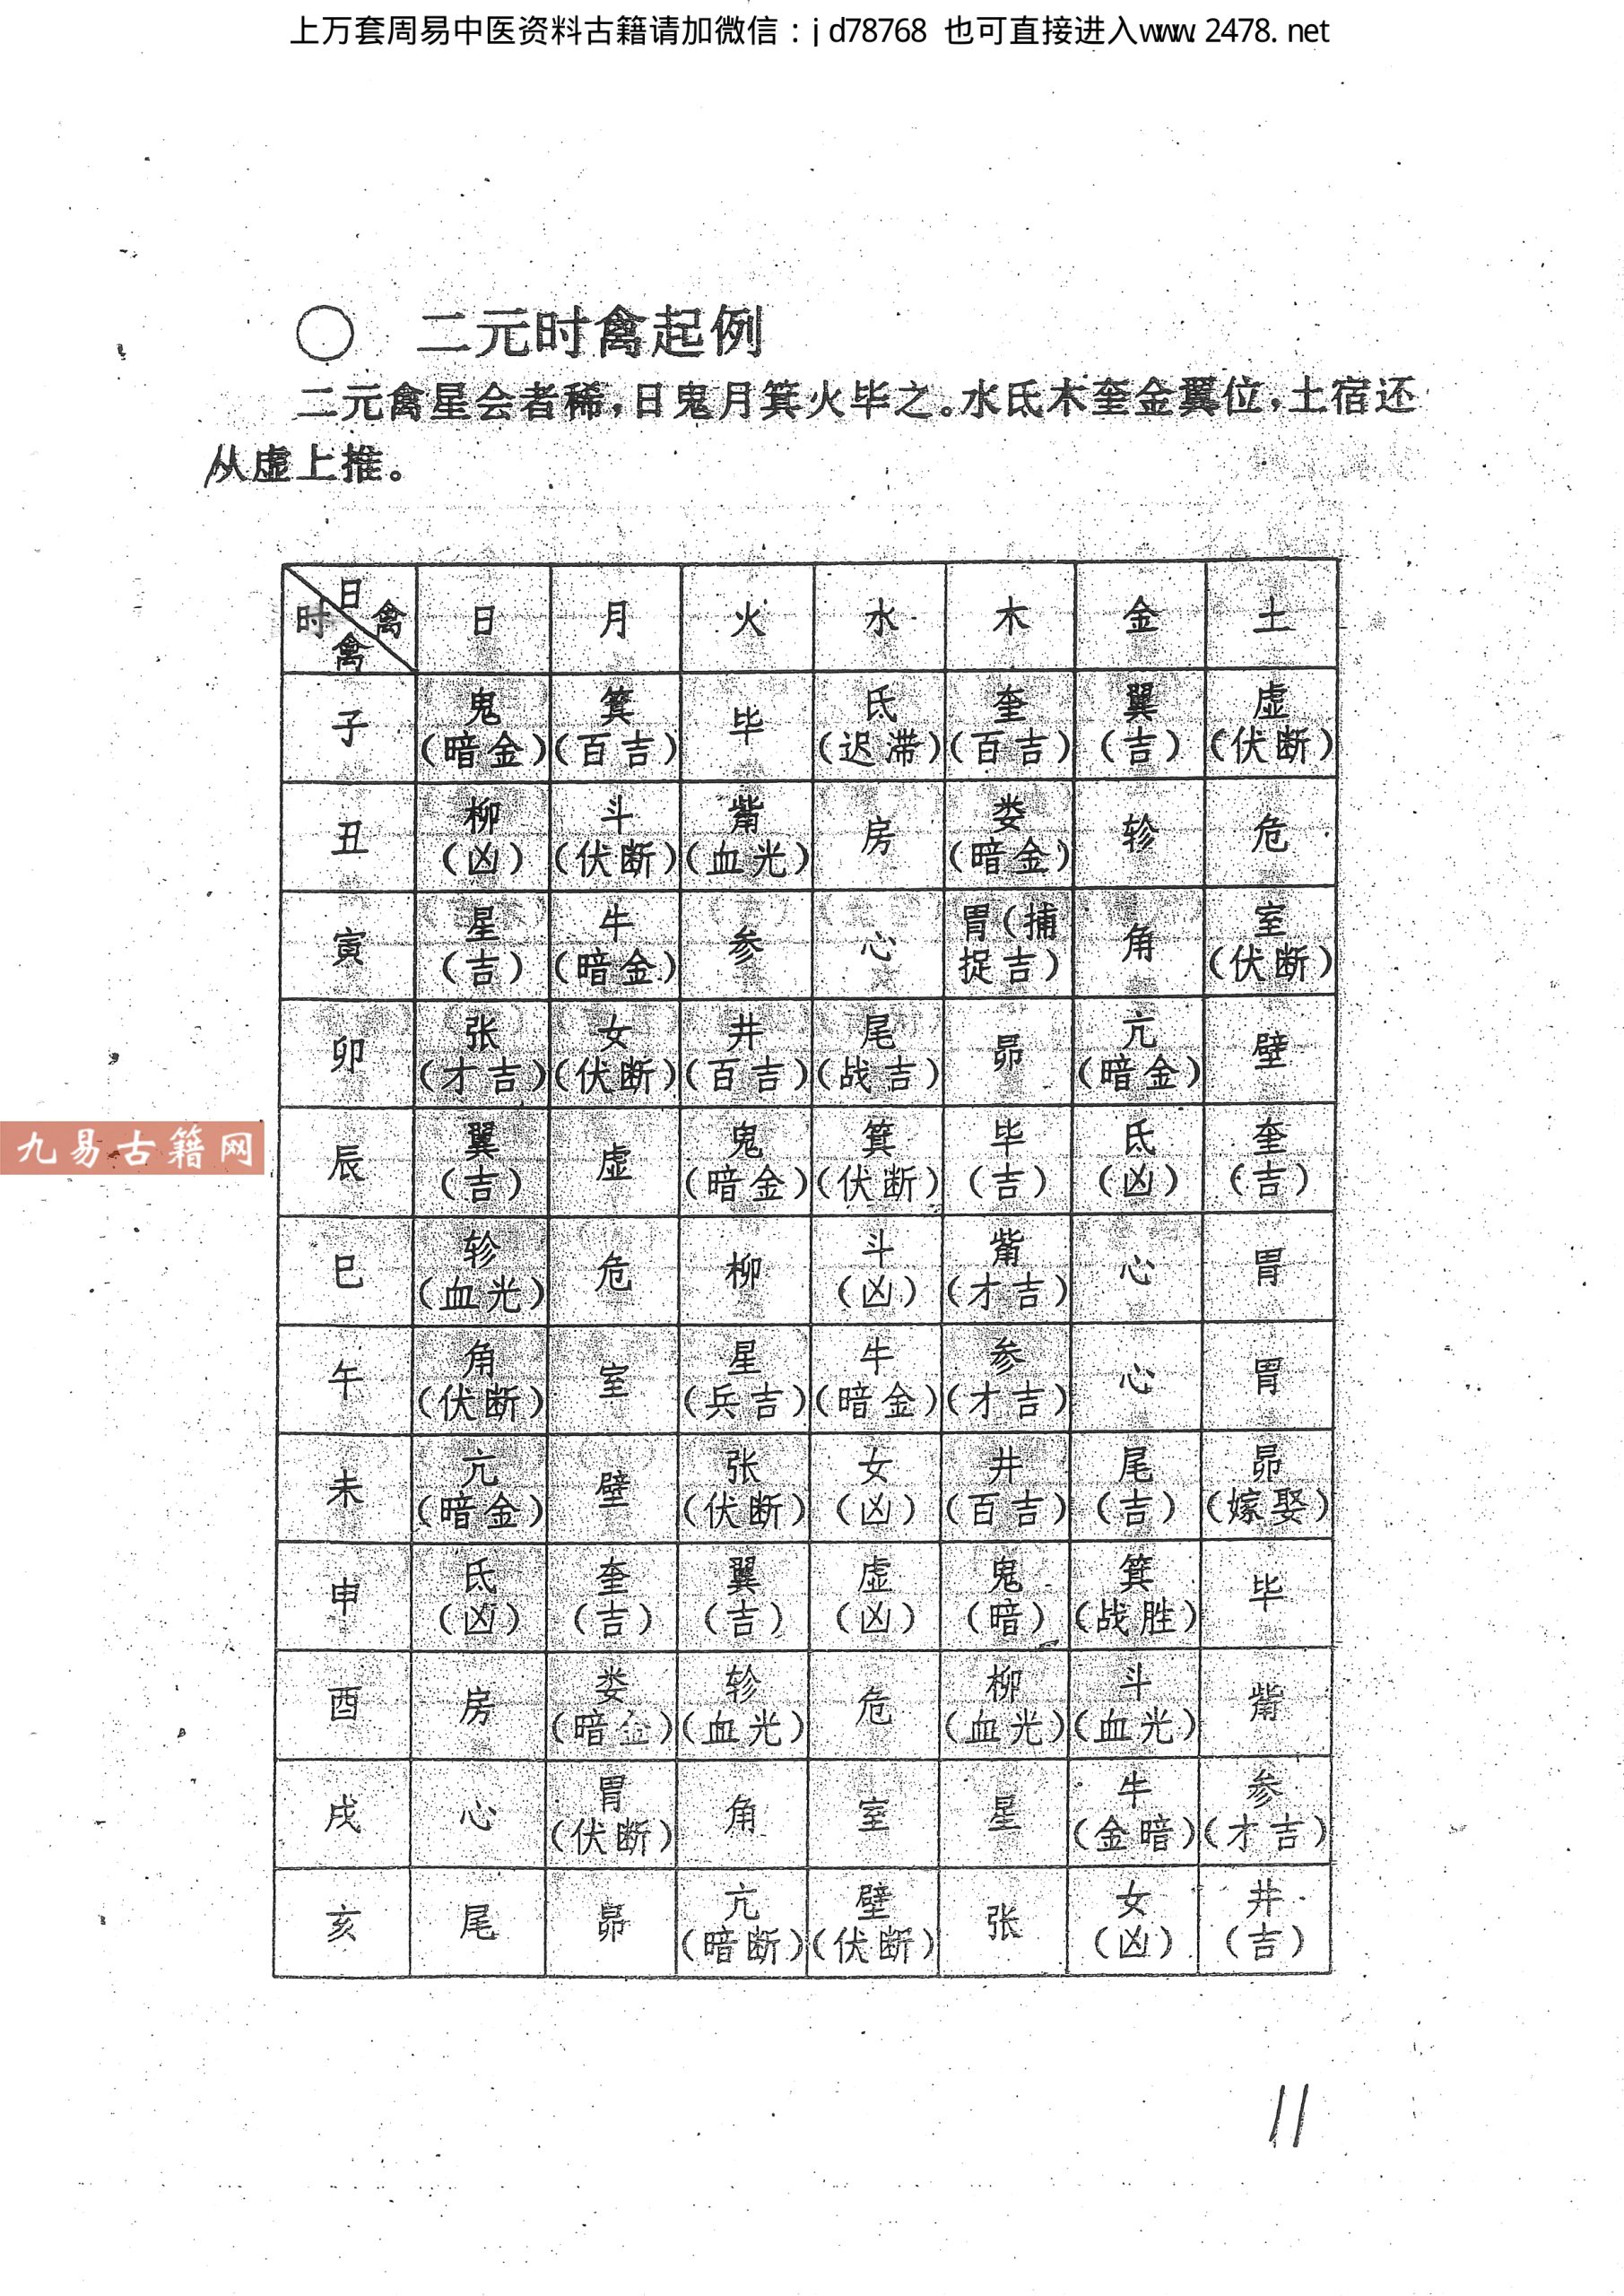 上万套周易中医资料古籍请加微信：jd78768 也可直接进入www.2478.net
○ 二元时禽起例
二元禽星会者稀，日鬼月箕火毕之。水氐木奎金翼位，土宿还
从虚上推。
日禽 时禽 日 月 火 水 木 金 土
子 鬼(暗金) 箕(百吉) 毕 氐(迟滞) 奎(百吉) 翼(吉) 虚(伏断)
丑 柳(凶) 斗(伏断) 觜(血光) 房 娄(暗金) 轸 危
寅 星(吉) 牛(暗金) 参 心 胃(捕捉吉) 角 室(伏断)
卯 张(才吉) 女(伏断) 井(百吉) 尾(战吉) 昴 亢(暗金) 壁
辰 翼(吉) 虚 鬼(暗金) 箕(伏断) 毕(吉) 氐(凶) 奎(吉)
巳 轸(血光) 危 柳 斗(凶) 觜(才吉) 心 胃
午 角(伏断) 室 星(兵吉) 牛(暗金) 参(才吉) 心 胃
未 亢(暗金) 壁 张(伏断) 女(凶) 井(百吉) 尾(吉) 昴(嫁娶)
申 氐(凶) 奎(吉) 翼(吉) 虚(凶) 鬼(暗) 箕(战胜) 毕
酉 房 娄(暗金) 轸(血光) 危 柳(血光) 斗(血光) 觜
戌 心 胃(伏断) 角 室 星 牛(金暗) 参(才吉)
亥 尾 昴 亢(暗断) 壁(伏断) 张 女(凶) 井(吉)
九易古籍网
11